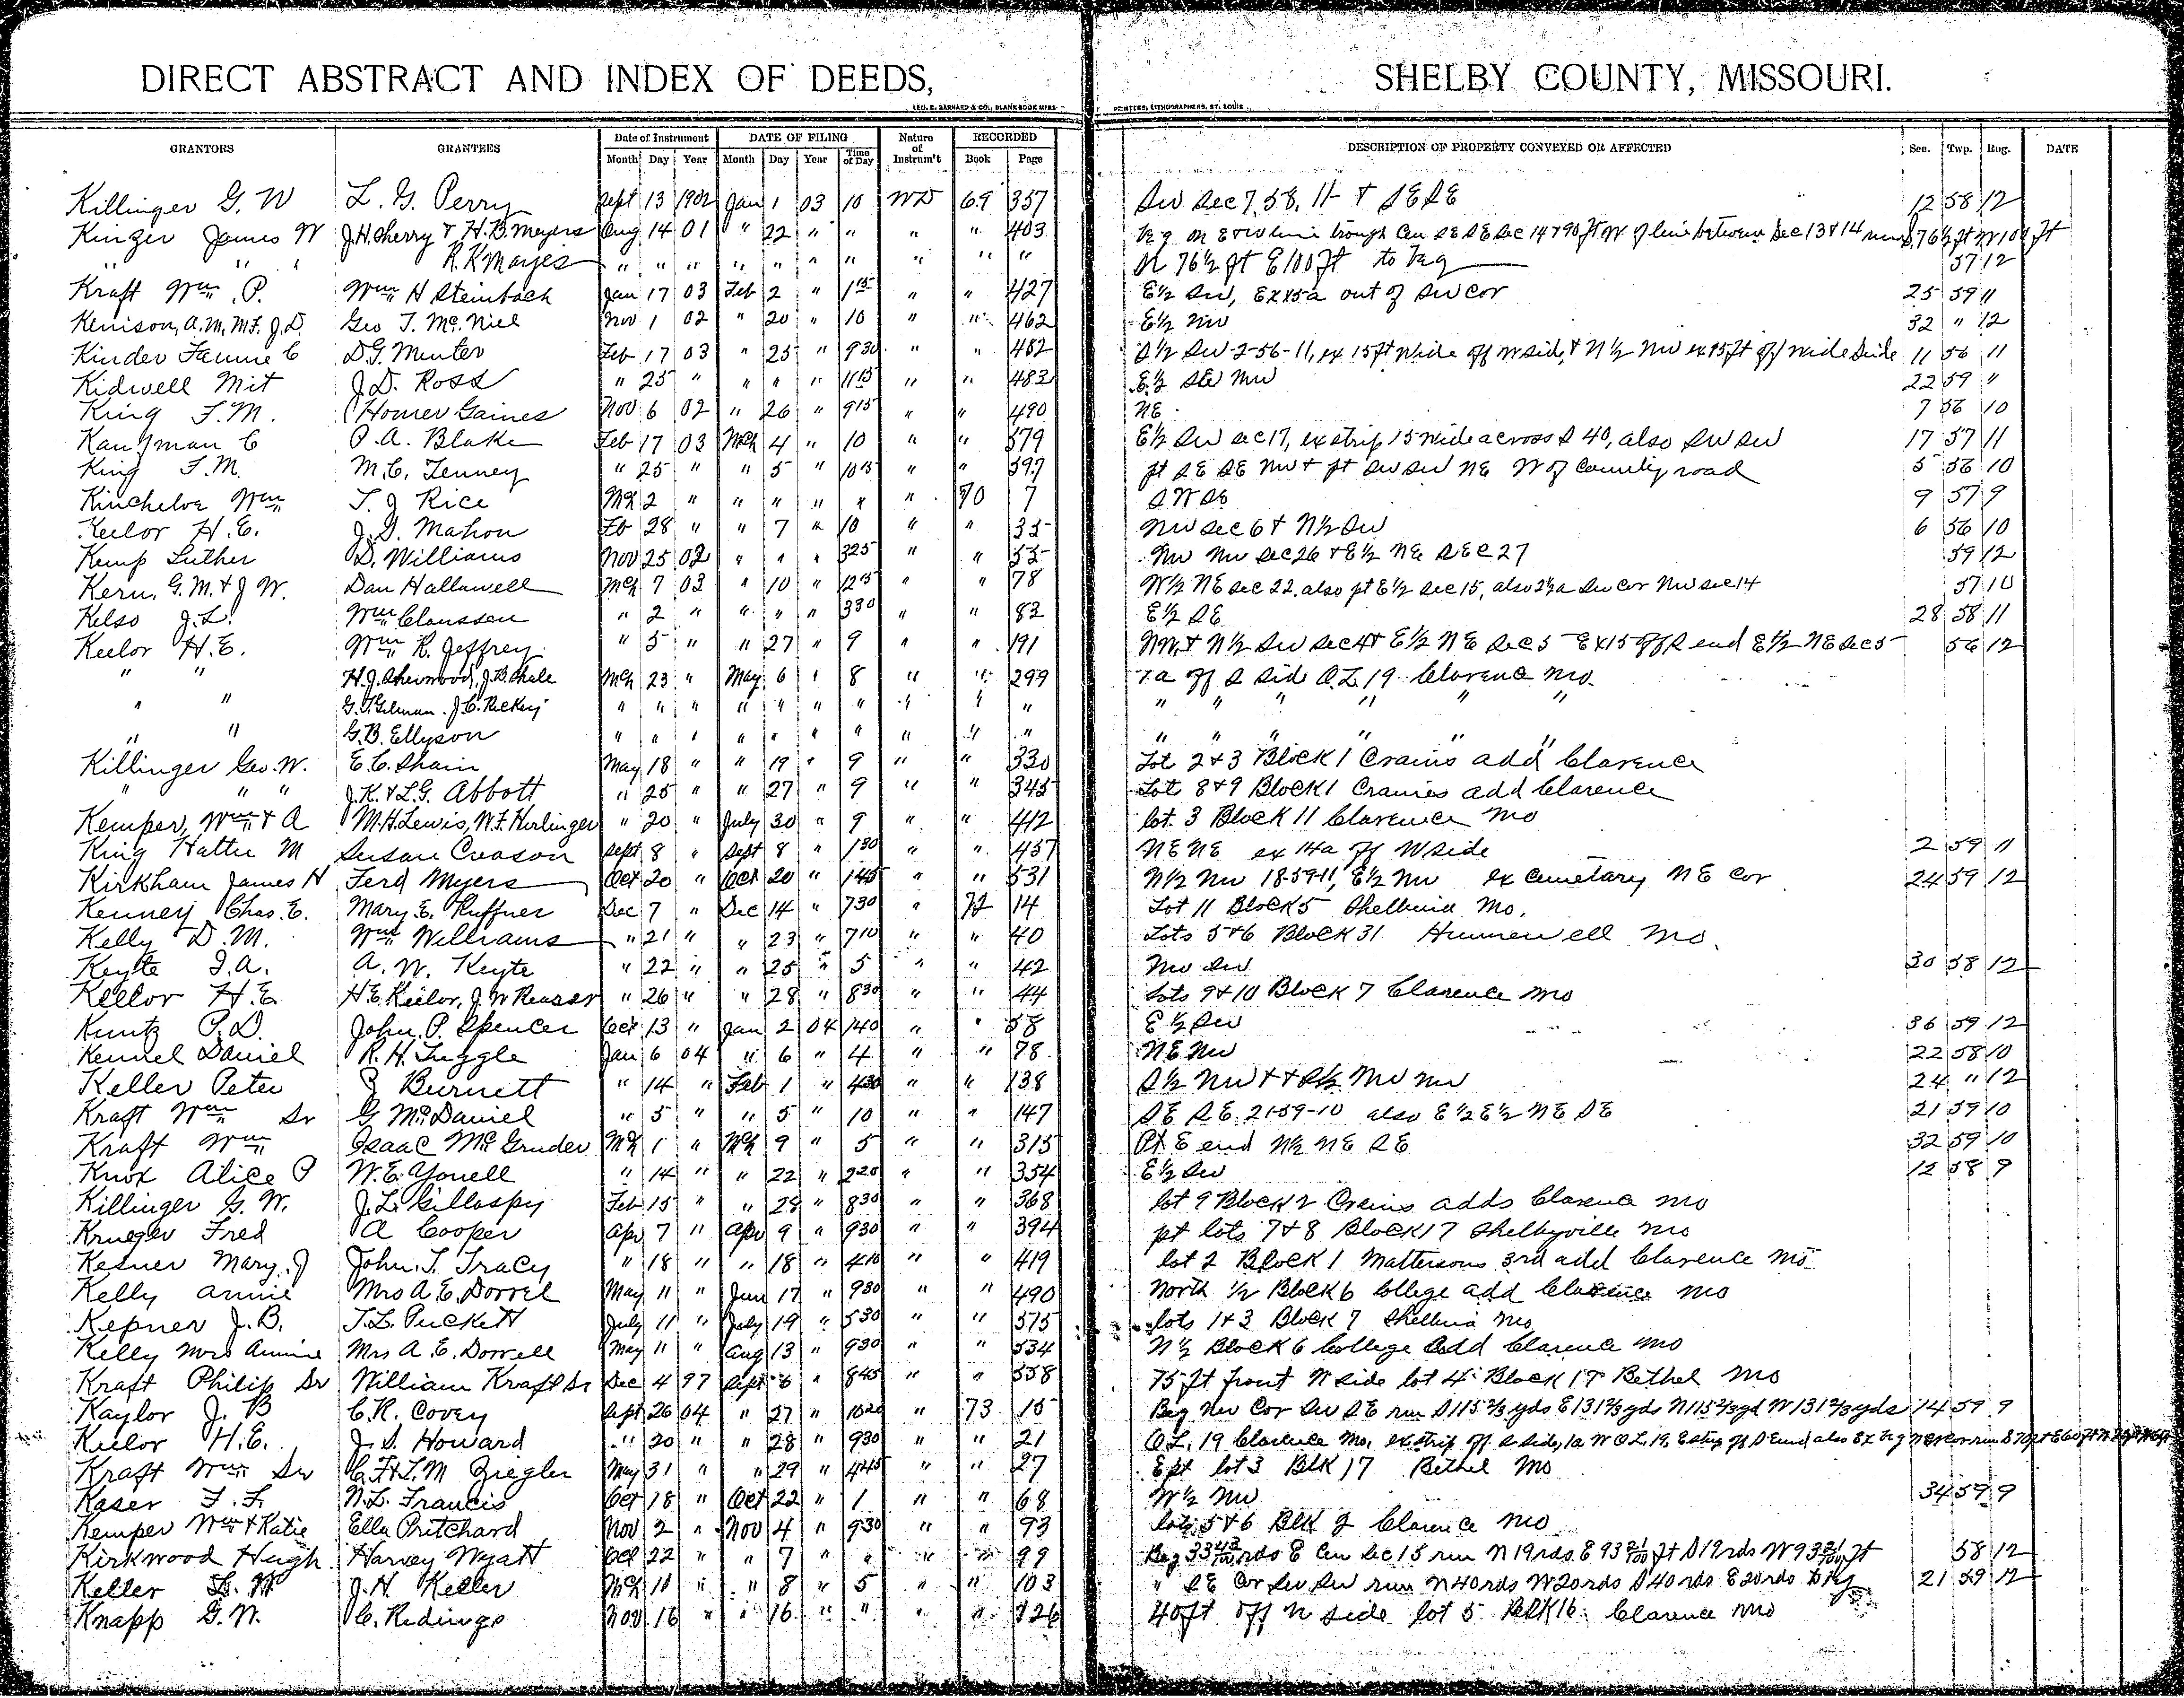 DIRECT ABSTRACT AND INDEX OF DEEDS, SHELBY COUNTY, MISSOURI.
LEO. D. BARNARD & CO., BLANK BOOK MFRS PRINTERS, LITHOGRAPHERS, ST. LOUIS
GRANTORS GRANTEES Date of Instrument DATE OF FILING Nature of Instrum't RECORDED DESCRIPTION OF PROPERTY CONVEYED OR AFFECTED Sec. Twp. Rng. DATE
Month Day Year Month Day Year Time of Day Book Page
Killinger G. W L. G. Perry Sept 13 1902 Jan 1 03 10 WD 69 357 SW Sec 7, 58, 11 - & SE SE 12 58 12
Kinzer James W J.H. Sherry & H.B. Meyers Aug 14 01 " 22 " " " " 403 Beg on E & W line through Cen SE SE Sec 14 & 90 ft W of line between Sec 13 & 14 run S 76½ ft W 100 ft
" " " R. K Mayes " " " " " " " " " " N 76½ ft E 100 ft to beg 57 12
Kraft Wm. P. Wm H Steinbach Jan 17 03 Feb 2 " 1 15 " " 427 E½ SW, Ex 15a out of SW cor 25 59 11
Kenison, A.M, M.F. J.D. Geo T. McNiel Nov 1 02 " 20 " 10 " " 462 E½ NW 32 " 12
Kinder Fannie C D.G. Minter Feb 17 03 " 25 " 9 30 " " 482 S½ SW-2-56-11, ex 15 ft wide off W side, & N½ NW ex 15 ft off Side 11 56 11
Kidwell Mit J. D. Ross " 25 " " " " 11 15 " " 483 E½ SW NW 22 59 "
King F. M. Homer Gaines Nov 6 02 " 26 " 9 15 " " 490 NE 7 56 10
Kaufman C P. A. Blake Feb 17 03 Mch 4 " 10 " " 579 E½ SW sec 17, ex strip 15 wide across S 40, also SW SW 17 57 11
King F. M. M. C. Tenney " 25 " " 5 " 10 15 " " 597 pt SE SE NW & pt SW SW NE W of County road 5 56 10
Kincheloe Wm T. J Rice Mch 2 " " " " " " 70 7 SW SE 9 57 9
Keelor H. E. J. S. Mahon Feb 28 " " 7 " 10 " " 35 NW sec 6 & N½ SW 6 56 10
Kemp Luther D. Williams Nov 25 02 " " " 3 25 " " 55 NW NW sec 26 & E½ NE SEC 27 59 12
Kern, G. M. & J W. Dan Hallawell Mch 7 03 " 10 " 12 15 " " 78 W½ NE sec 22, also pt E½ sec 15, also 2½a SW cor NW sec 14 57 10
Kelso J. L. Wm Claussen " 2 " " " " 3 30 " " 82 E½ SE 28 58 11
Keelor H. E. Wm R. Jeffrey " 5 " " 27 " 9 " " 191 NW & N½ SW Sec 4 & E½ NE Sec 5 Ex 15 off S end E½ NE Sec 5 56 12
" " H. J. Sherwood, J. B. Shale Mch 23 " May 6 " 8 " " 299 7a off S side O.L. 19 Clarence Mo.
" " G. T. Gilman. J. C. Puckey " " " " " " " " " " " " " " " "
" " G. B. Ellyson " " " " " " " " " " " " " " " "
Killinger Geo. W. E. C. Shain May 18 " " 19 " 9 " " 330 Lot 2 & 3 Block 1 Crains add Clarence
" " " J. K. & L. G. Abbott " 25 " " 27 " 9 " " 345 Lot 8 & 9 Block 1 Crains add Clarence
Kemper, Wm & A M. H. Lewis, W. F. Herlinger " 20 " July 30 " 9 " " 412 lot 3 Block 11 Clarence Mo
King Hattie M Susan Creason Sept 8 " Sept 8 " 1 30 " " 457 NE NE ex 14a off W side 2 59 11
Kirkham James H Ferd Myers Oct 20 " Oct 20 " 1 45 " " 531 N½ NW 18-59-11, E½ NW ex cemetary NE cor 24 59 12
Kenney Chas. E. Mary E. Ruffner Dec 7 " Dec 14 " 7 30 " 72 14 Lot 11 Block 5 Shelbina Mo.
Kelly D. M. Wm Williams " 21 " " 23 " 7 10 " " 40 Lots 5 & 6 Block 31 Hunnewell Mo.
Keyte J. A. A. W. Keyte " 22 " " 25 " 5 " " 42 NW SW 30 58 12
Keelor H. E H. E. Keelor, J. W Reaser " 26 " " 28 " 8 30 " " 44 Lots 9 & 10 Block 7 Clarence Mo
Kuntz P. D. John P. Spencer Oct 13 " Jan 2 04 1 40 " " 58 E½ SW 36 59 12
Kennel Daniel R. H. Tuggle Jan 6 04 " 6 " 4 " " 78 NE NW 22 58 10
Keller Peter J Burnett " 14 " Feb 1 " 4 30 " " 138 S½ NW & & S½ NW NW 24 " 12
Kraft Wm Sr G McDaniel " 5 " " 5 " 10 " " 147 SE SE 21-59-10 also E½ E½ NE SE 21 59 10
Kraft Wm Isaac McGruder Mch 1 " Mch 9 " 5 " " 315 Pt E end N½ NE SE 32 59 10
Knox Alice P W. E. Yowell " 14 " " 22 " 2 20 " " 354 E½ SW 12 58 9
Killinger G. W. J. L. Gillaspy Feb 15 " " 29 " 8 30 " " 368 lot 9 Block 2 Crains adds Clarence Mo
Krueger Fred A Cooper Apr 7 " Apr 9 " 9 30 " " 394 pt lots 7 & 8 Block 17 Shelbyville Mo
Kesner Mary. J John. T. Tracy " 18 " " 18 " 4 10 " " 419 lot 2 Block 1 Mattersons 3rd add Clarence Mo
Kelly Annie Mrs A. E. Dorrel May 11 " Jun 17 " 9 30 " " 490 North ½ Block 6 College add Clarence Mo
Kepner J. B. T. L. Puckett July 11 " July 19 " 5 30 " " 575 lots 1 & 3 Block 7 Shelbina Mo
Kelly Mrs Annie Mrs A. E. Dorrell May 11 " Aug 13 " 9 30 " " 534 N½ Block 6 College Add Clarence Mo
Kraft Philip Sr William Kraft Sr Dec 4 97 Sept 6 " 8 45 " " 558 75 ft front N side lot 4 Block 17 Bethel Mo
Kaylor J. B C. R. Covey Sept 26 04 " 27 " 10 20 " 73 15 Beg NW Cor SW SE run S 115⅔ yds E 131⅔ yds N 115⅔ yd W 131⅔ yds 14 59 9
Keelor H. E. J. S. Howard " 20 " " 28 " 9 30 " " 21 O.L. 19 Clarence Mo, ex strip off S side, 1a W O.L. 19, E strip off S end also Ex beg
Kraft Wm Sr C. F. H. L. M Ziegler May 31 " " 29 " 4 45 " " 27 E pt lot 3 Blk 17 Bethel Mo
Kaser F. F. N. L. Francis Oct 18 " Oct 22 " 1 " " 68 W½ NW 34 59 9
Kemper Wm & Katie Ella Pritchard Nov 2 " Nov 4 " 9 30 " " 93 lots 5 & 6 Blk 2 Clarence Mo
Kirkwood Hugh Harvey Wyatt Oct 22 " " 7 " " " " 99 Beg 33 43/100 rds E Cen Sec 15 run N 19 rds E 93 21/100 ft S 19 rds W 93 21/100 ft 58 12
Keller L. W J. H. Keller Mch 10 " " 8 " 5 " " 103 " SE Cor SW SW run N 40 rds W 20 rds S 40 rds E 20 rds to beg 21 59 12
Knapp G. W. C. Ridings Nov 16 " " 16 " " " " 126 40 ft off N side lot 5 Blk 16 Clarence Mo